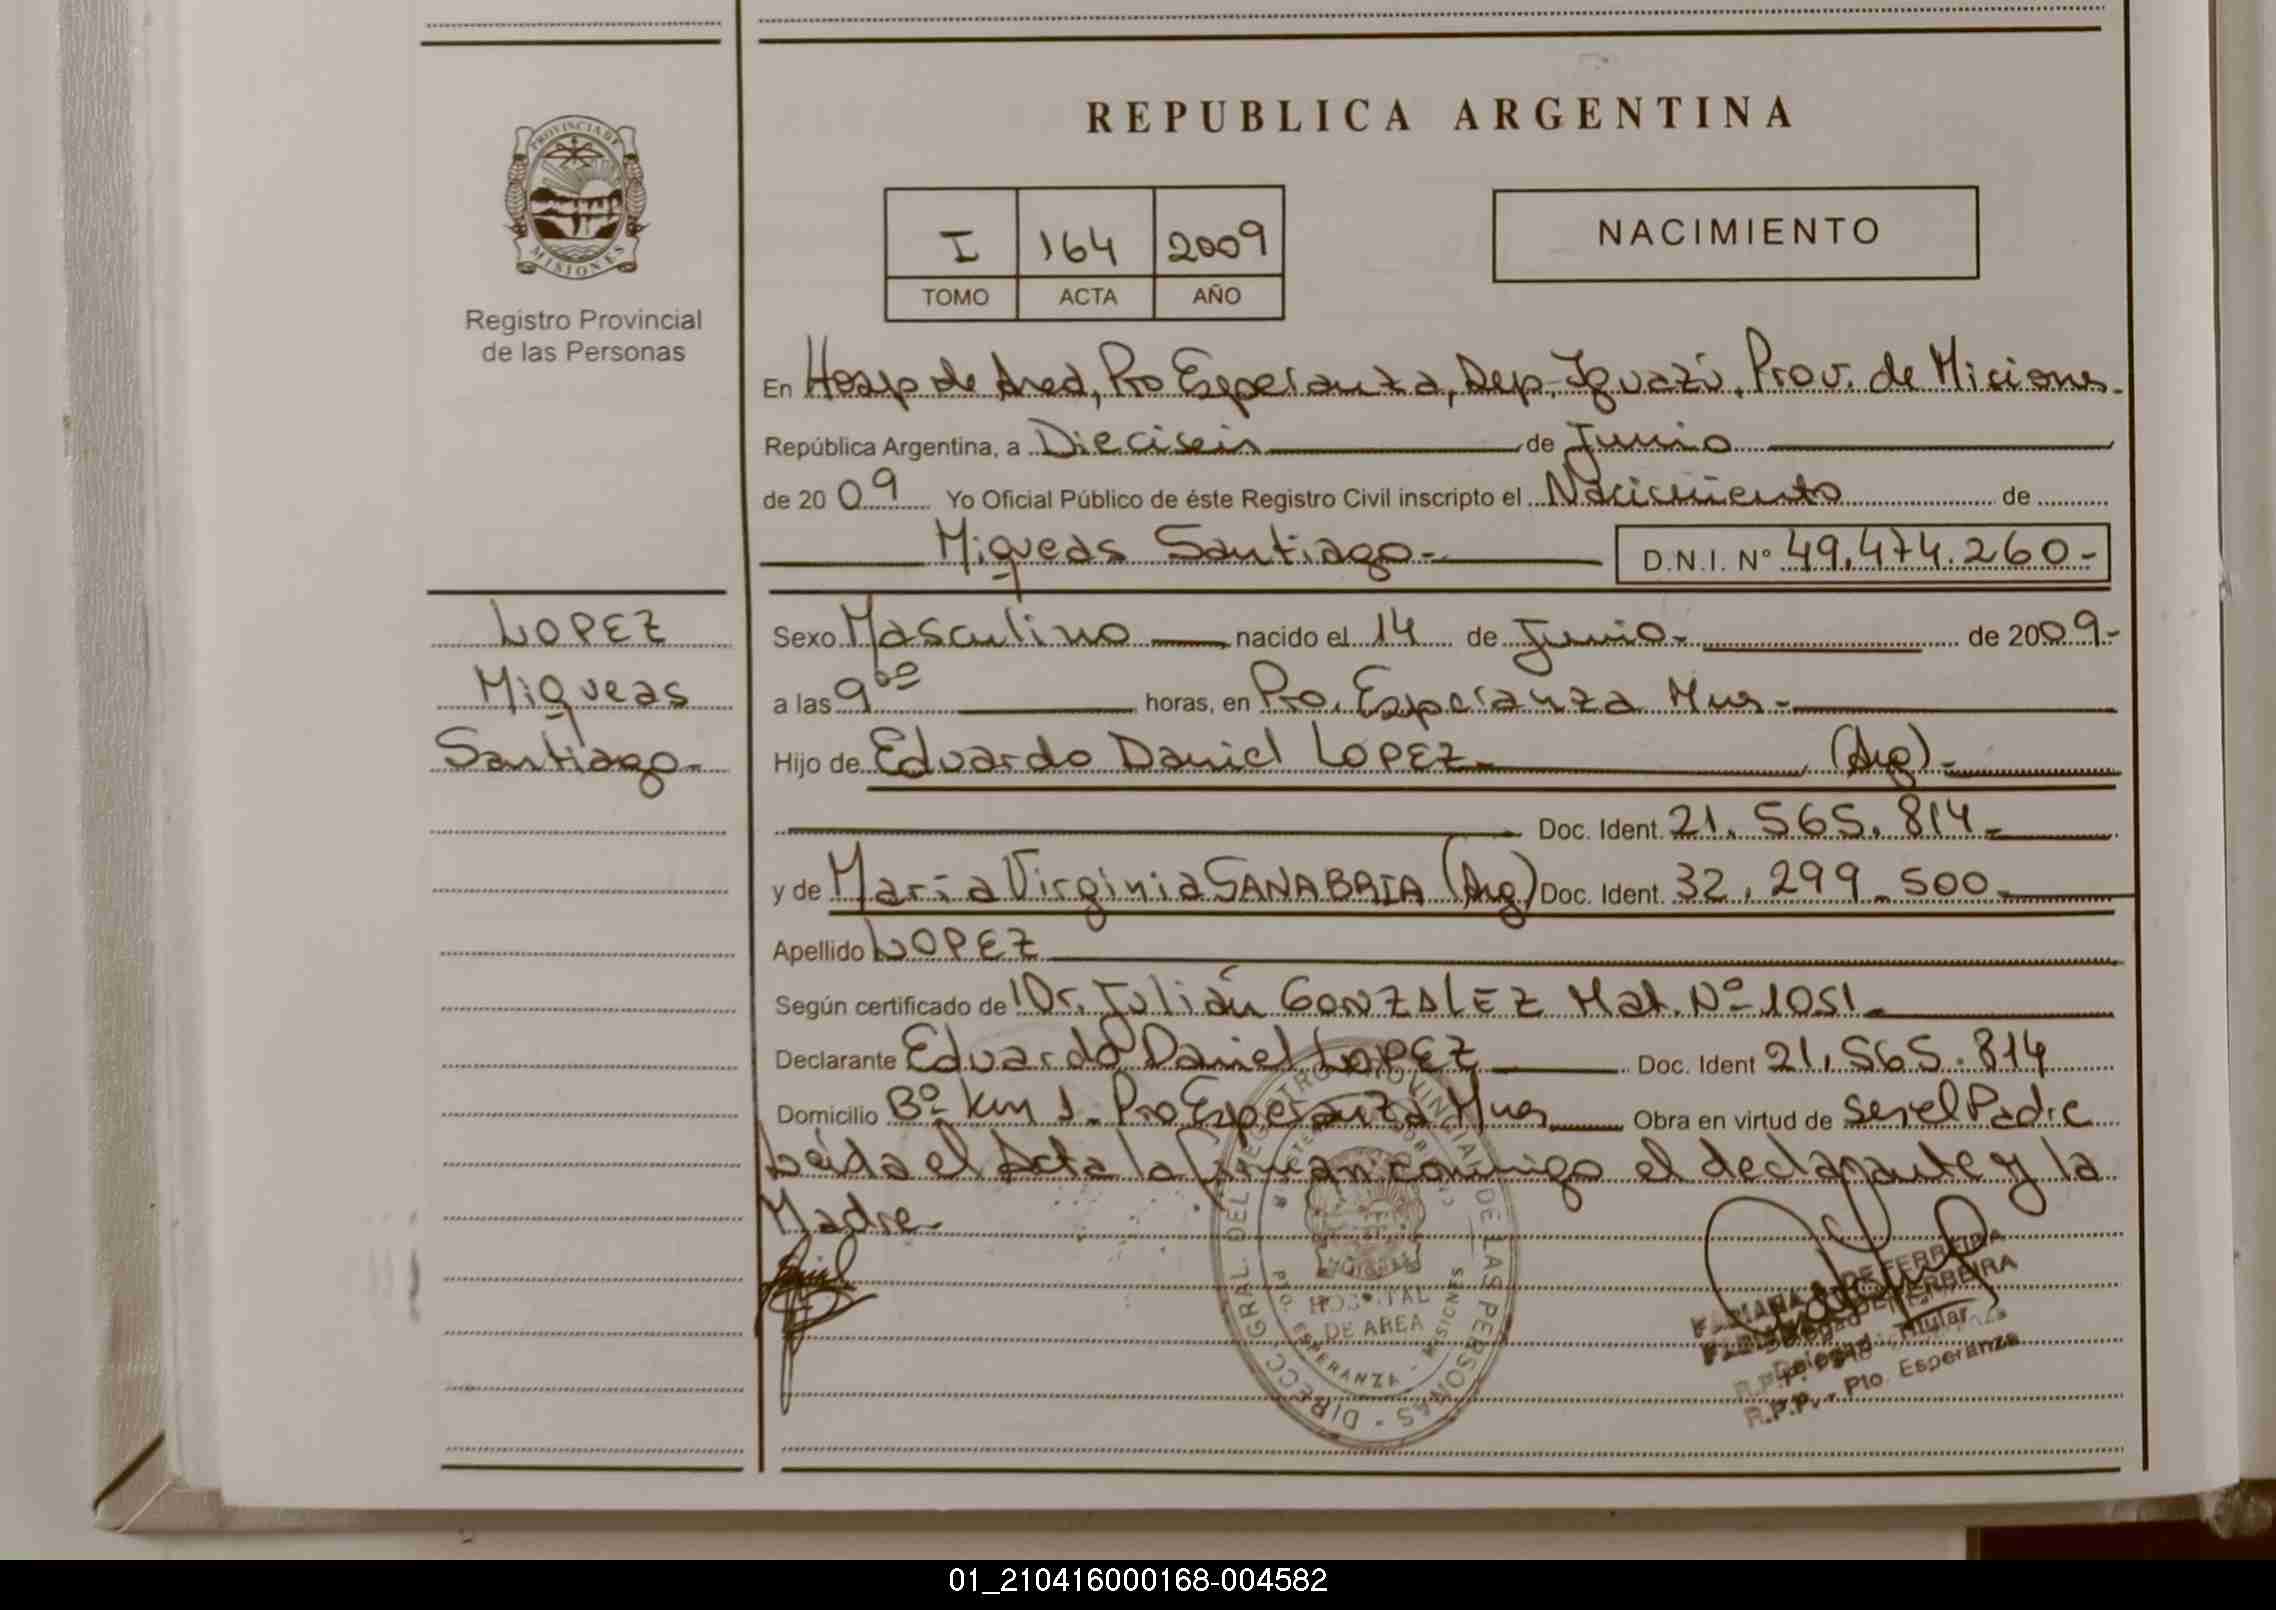 REPUBLICA ARGENTINA
PROVINCIA DE
MISIONES
Registro Provincial
de las Personas
I 164 2009
TOMO ACTA AÑO
NACIMIENTO
En Hosp de Area, Pto Esperanza, Dep. Iguazú, Prov. de Miciones.
República Argentina, a Dieciseis de Junio
de 2009 Yo Oficial Público de éste Registro Civil inscripto el Nacimiento de
Miqueas Santiago- D.N.I. Nº 49.474.260-
LOPEZ
Miqueas
Santiago-
Sexo Masculino nacido el 14 de Junio- de 2009-
a las 9⁰⁰ horas, en Pto. Esperanza Mnes-
Hijo de Eduardo Daniel LOPEZ- (Arg)-
Doc. Ident. 21.565.814-
y de María Virginia SANABRIA (Arg) Doc. Ident. 32.299.500-
Apellido LOPEZ
Según certificado de Dr. Julián GONZALEZ Mat. Nº 1051-
Declarante Eduardo Daniel LOPEZ Doc. Ident 21.565.814
Domicilio Bº km 1- Pto Esperanza Mnes Obra en virtud de ser el Padre
Leída el Acta la firman conmigo el declarante y la
Madre-
DIRECC. GRAL. DEL REGISTRO PROVINCIAL DE LAS PERSONAS
HOSPITAL
DE AREA
PTO. ESPERANZA - MISIONES
DE FERREIRA
Titular
R.P.P. - Pto. Esperanza
01_210416000168-004582